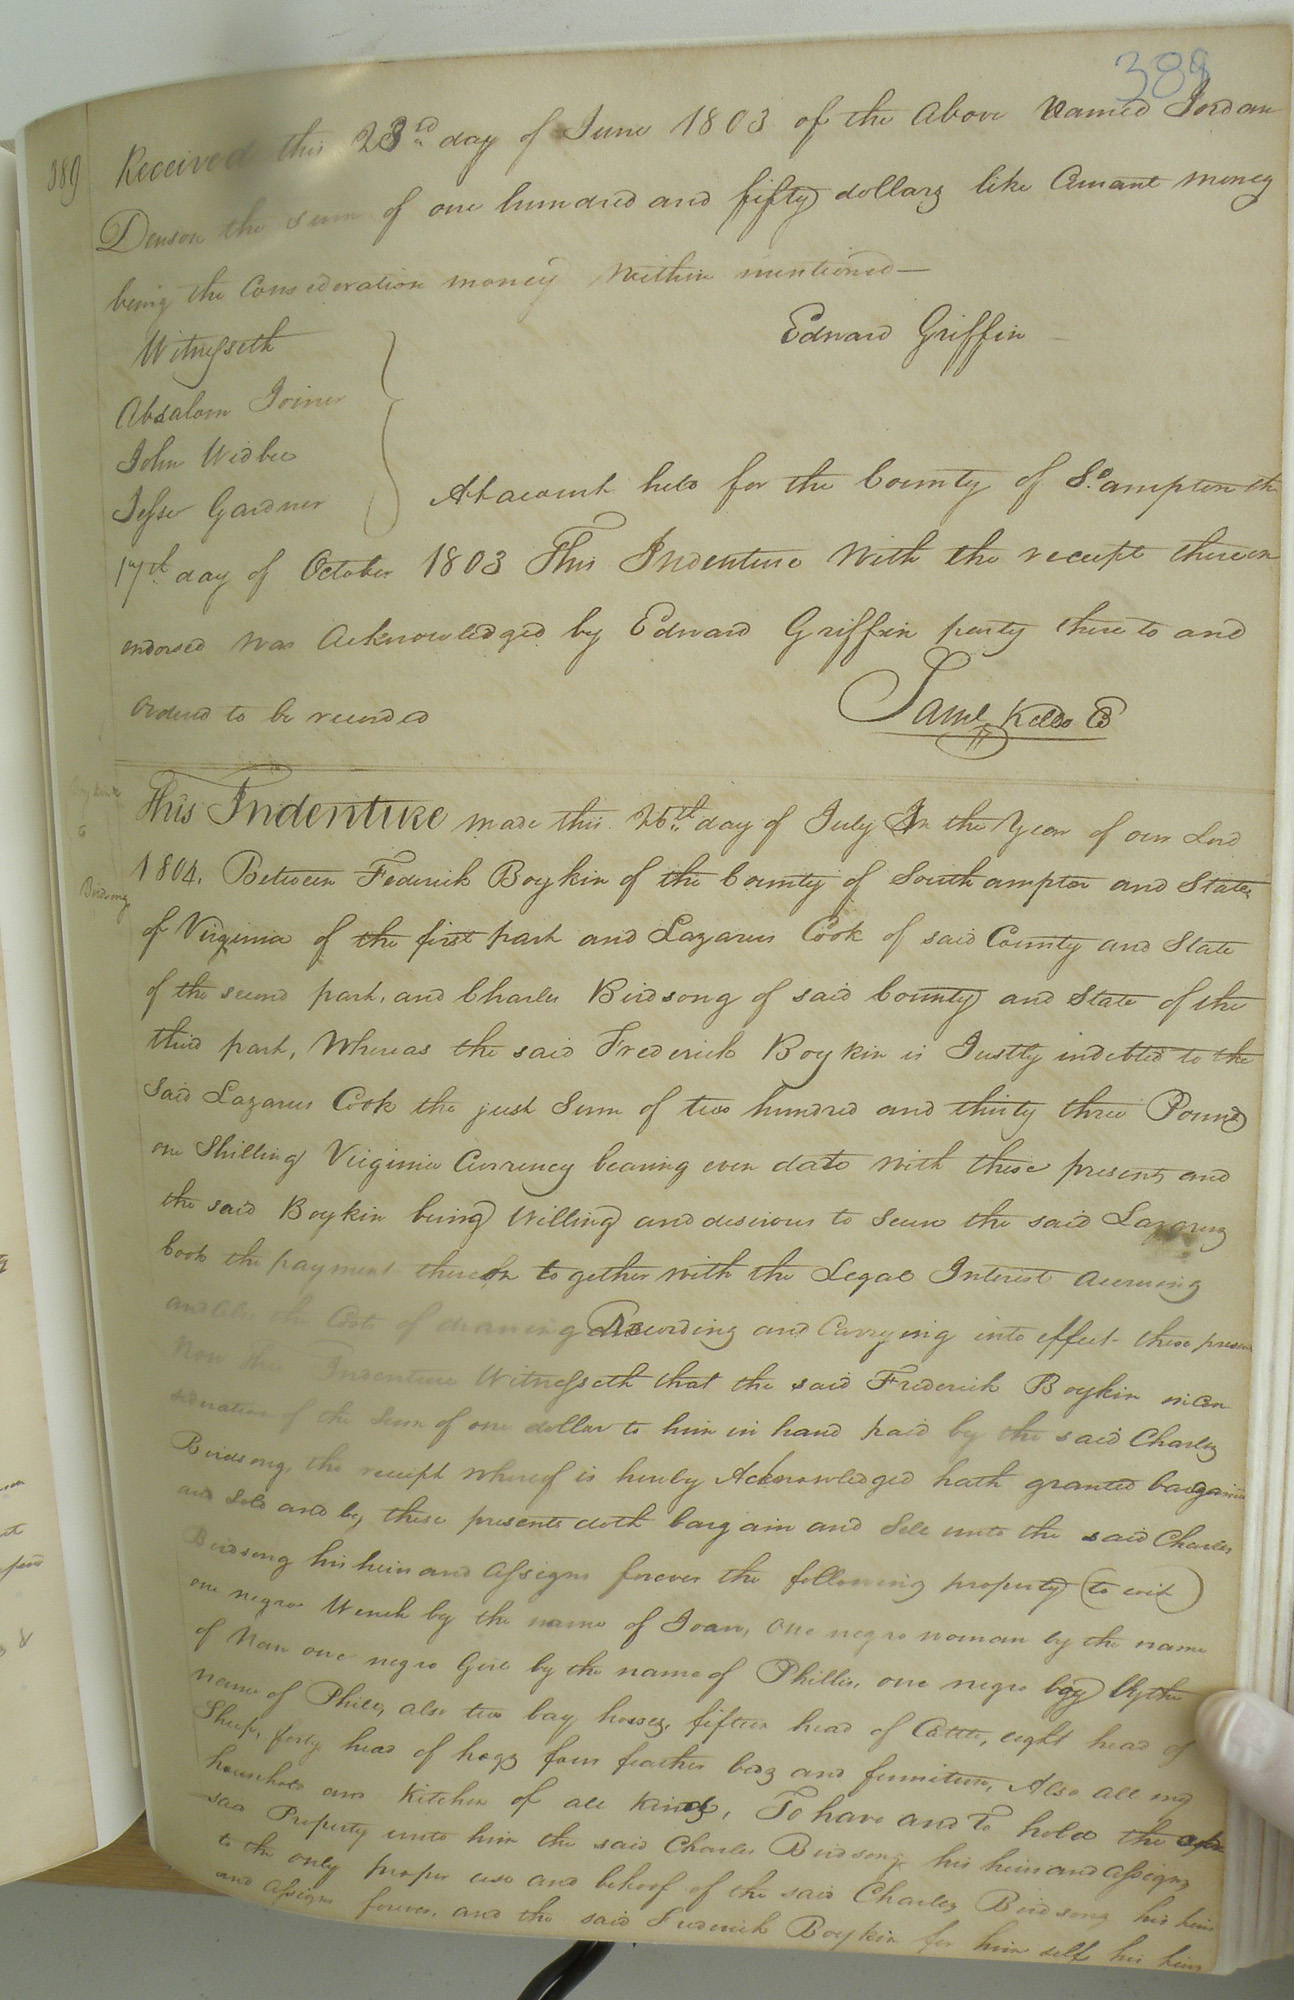 389
389
Received this 23rd day of June 1803 of the above named Jordan
Denson the sum of one hundred and fifty dollars like Currant money
being the Consideration money within mentioned—
Edward Griffin
Witnesseth
Absalom Joiner
John Widbee
Jesse Gardner
At a court held for the County of So.ampton the
17th day of October 1803 This Indenture with the receipt thereon
endorsed was acknowledged by Edward Griffin party there to and
ordered to be recorded
Saml Kello CC
Boykin
to
Birdsong
This Indenture made this 26th day of July In the Year of our Lord
1804. Between Federick Boykin of the County of Southampton and State
of Virginia of the first part and Lazarus Cook of said County and State
of the second part, and Charles Birdsong of said County and State of the
third part, Whereas the said Frederick Boykin is Justly indebted to the
Said Lazarus Cook the just Sum of two hundred and thirty three Pound
one Shilling Virginia Currency bearing even date with these presents and
the said Boykin being Willing and desirous to Secure the said Lazarus
Cook the payment thereon together with the Legal Interest accruing
and also the Costs of drawing Recording and Carrying into effect these presents
Now this Indenture Witnesseth that the said Frederick Boykin in Con
sideration of the Sum of one dollar to him in hand paid by the said Charles
Birdsong, the receipt whereof is hereby Acknowledged hath granted bargained
and Sold and by these presents doth bargain and Sell unto the said Charles
Birdsong his heirs and assigns forever the following property (to wit)
one negroe Wench by the name of Joan, one negro woman by the name
of Nan one negro Girl by the name of Phillis, one negro boy by the
name of Phill, also two bay horses, fifteen head of Cattle, eight head of
Sheep, forty head of hogs four feather beds and furniture, Also all my
household and Kitchen of all kinds, To have and To hold the
said Property unto him the said Charles Birdsong his heirs and assigns
to the only proper use and behoof of the said Charles Birdsong his heirs
and assigns forever. and the said Frederick Boykin for him self his heirs